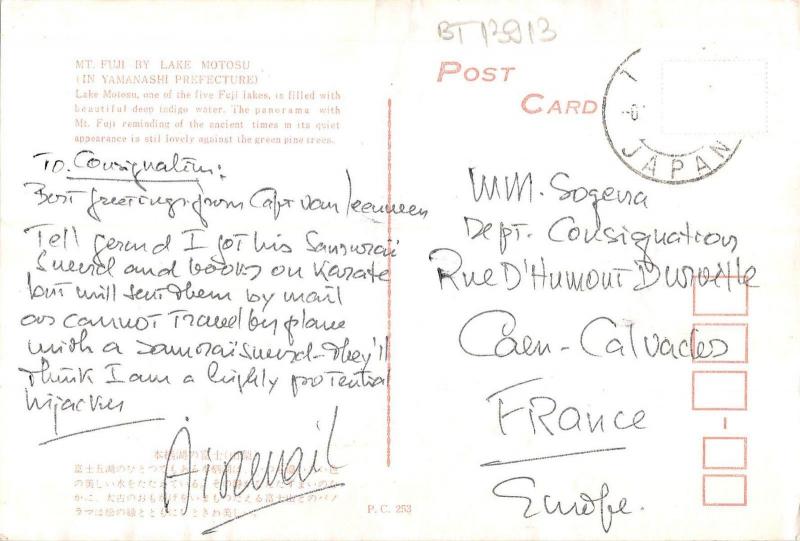 BT 13913
MT. FUJI BY LAKE MOTOSU
(IN YAMANASHI PREFECTURE)
Lake Motosu, one of the five Fuji lakes, is filled with
beautiful deep indigo water. The panorama with
Mt. Fuji reminding of the ancient times in its quiet
appearance is still lovely against the green pine trees.
POST
CARD
JAPAN
To Consignation:
Best greetings from Capt van Leeuween
Tell gerard I got his Samouraï
Sword and books on Karate
but will sent them by mail
as cannot travel by plane
with a samoraï sword - they'll
think I am a highly potential
hijacker
Airmail
MM. Sogena
Dept. Consignation
Rue D'Humont Durville
Caen - Calvados
FRANCE
Europe.
富士五湖のひとつでもある
の美しい水をたたえている。その
かに、太古のおもかげをいまもつたえる富士山とのパノ
ラマは松の緑とともにひときわ美しい。
P. C. 253